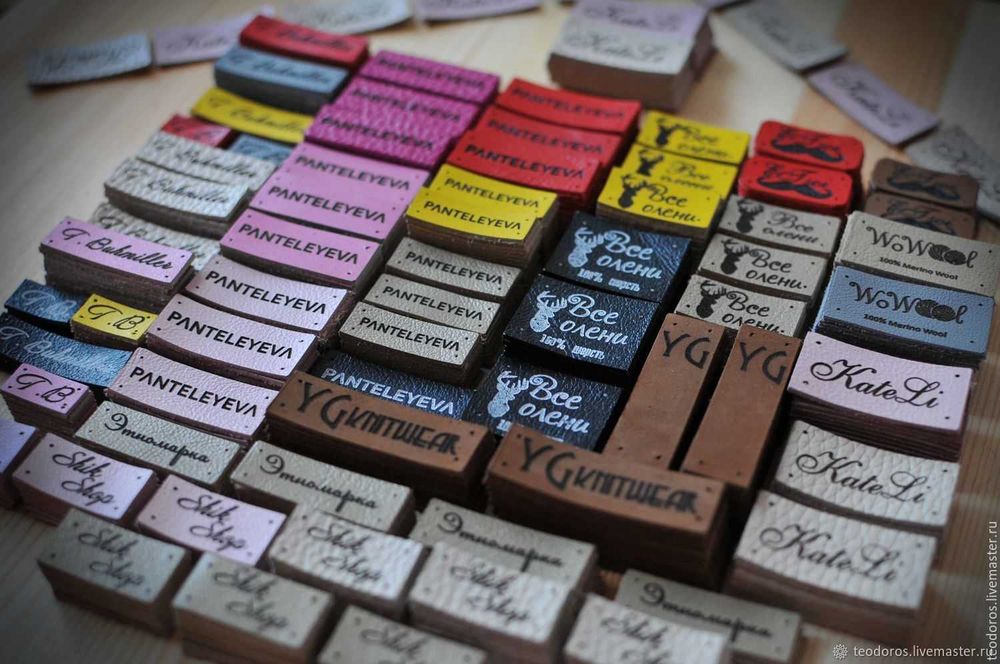 KateLi
KateLi
KateLi
PANTELEYEVA
PANTELEYEVA
PANTELEYEVA
PANTELEYEVA
PANTELEYEVA
PANTELEYEVA
Все
олени
Все
олени
PANTELEYEVA
PANTELEYEVA
PANTELEYEVA
PANTELEYEVA
PANTELEYEVA
Все
олени
100% шерсть
Все
олени
Все
олени
WoWool
100% Merino Wool
T. Buhmiller
PANTELEYEVA
PANTELEYEVA
PANTELEYEVA
Все
олени
100% шерсть
Все
олени
WoWool
100% Merino Wool
T.B.
PANTELEYEVA
PANTELEYEVA
YG
YG
KateLi
T.B.
PANTELEYEVA
PANTELEYEVA
Все
олени
YG KNITWEAR
Этномарка
Этномарка
YG KNITWEAR
KateLi
Shik
Shop
Shik
Shop
Shik
Shop
Этномарка
KateLi
Shik
Shop
Shik
Shop
Shik
Shop
Этномарка
Shik
Shop
Shik
Shop
teodoros.livemaster.ru
teodoros.livemaster.ru